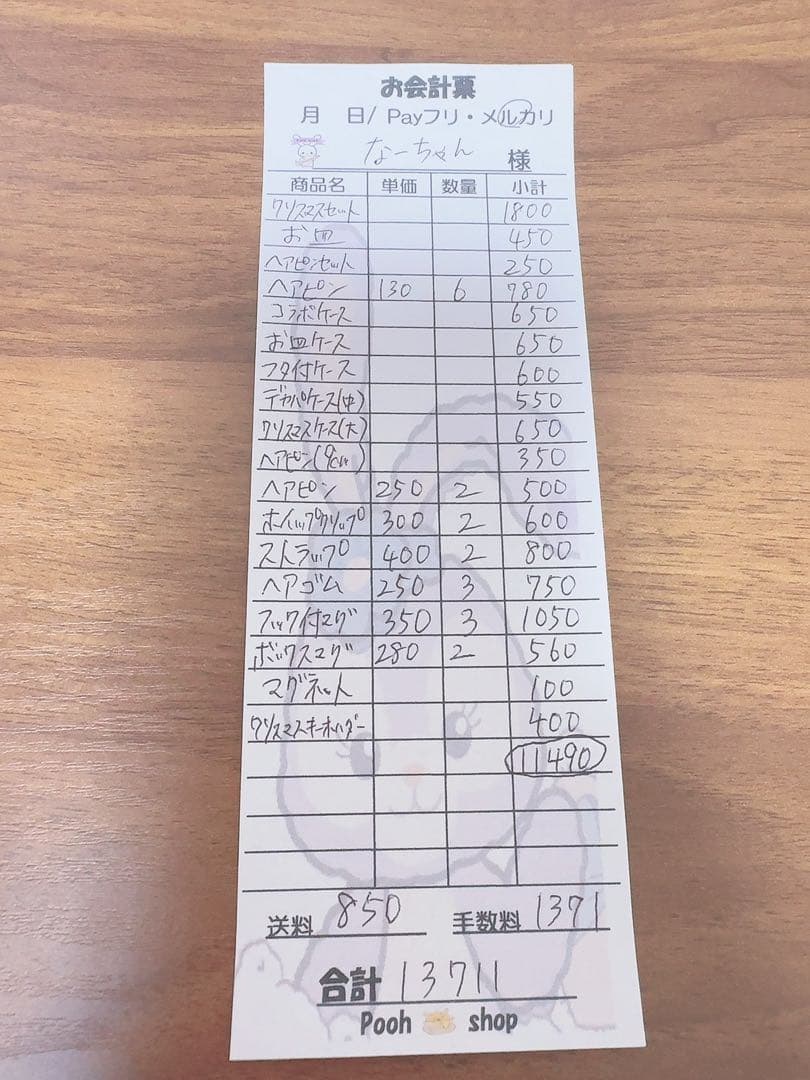 お会計票
月 日/ Payフリ・メルカリ
なーちゃん 様
商品名 単価 数量 小計
クリスマスセット 1800
お皿 450
ヘアピンセット 250
ヘアピン 130 6 780
コラボケース 650
お皿ケース 650
フタ付ケース 600
デカパケース(中) 550
クリスマスケース(大) 650
ヘアピン(9cm) 350
ヘアピン 250 2 500
ホイップクリップ 300 2 600
ストラップ 400 2 800
ヘアゴム 250 3 750
フック付マグ 350 3 1050
ボックスマグ 280 2 560
マグネット 100
クリスマスキーホルダー 400
11490
送料 850 手数料 1371
合計 13711
Pooh shop